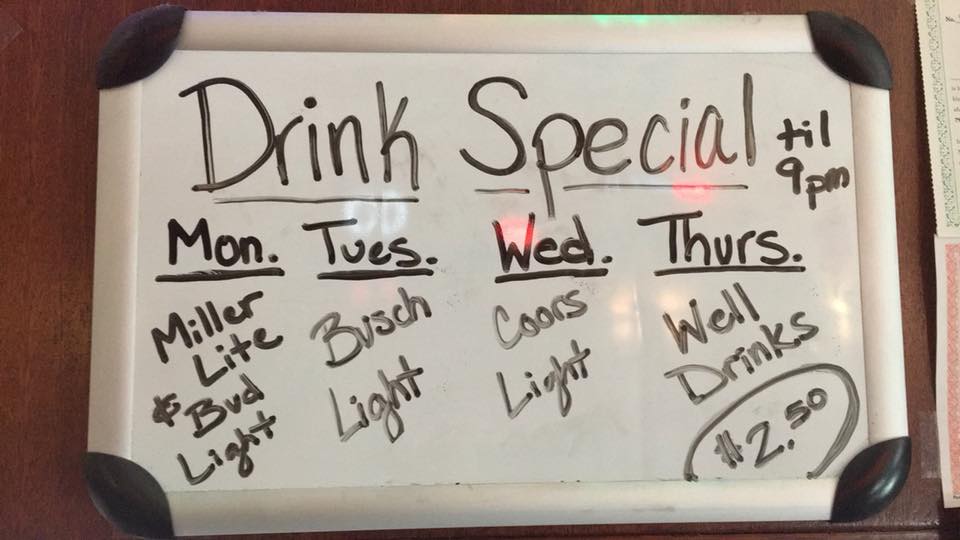 Drink Special til
9pm
Mon. Tues. Wed. Thurs.
Miller
Lite
& Bud
Light
Busch
Light
Coors
Light
Well
Drinks
$2.50
No.